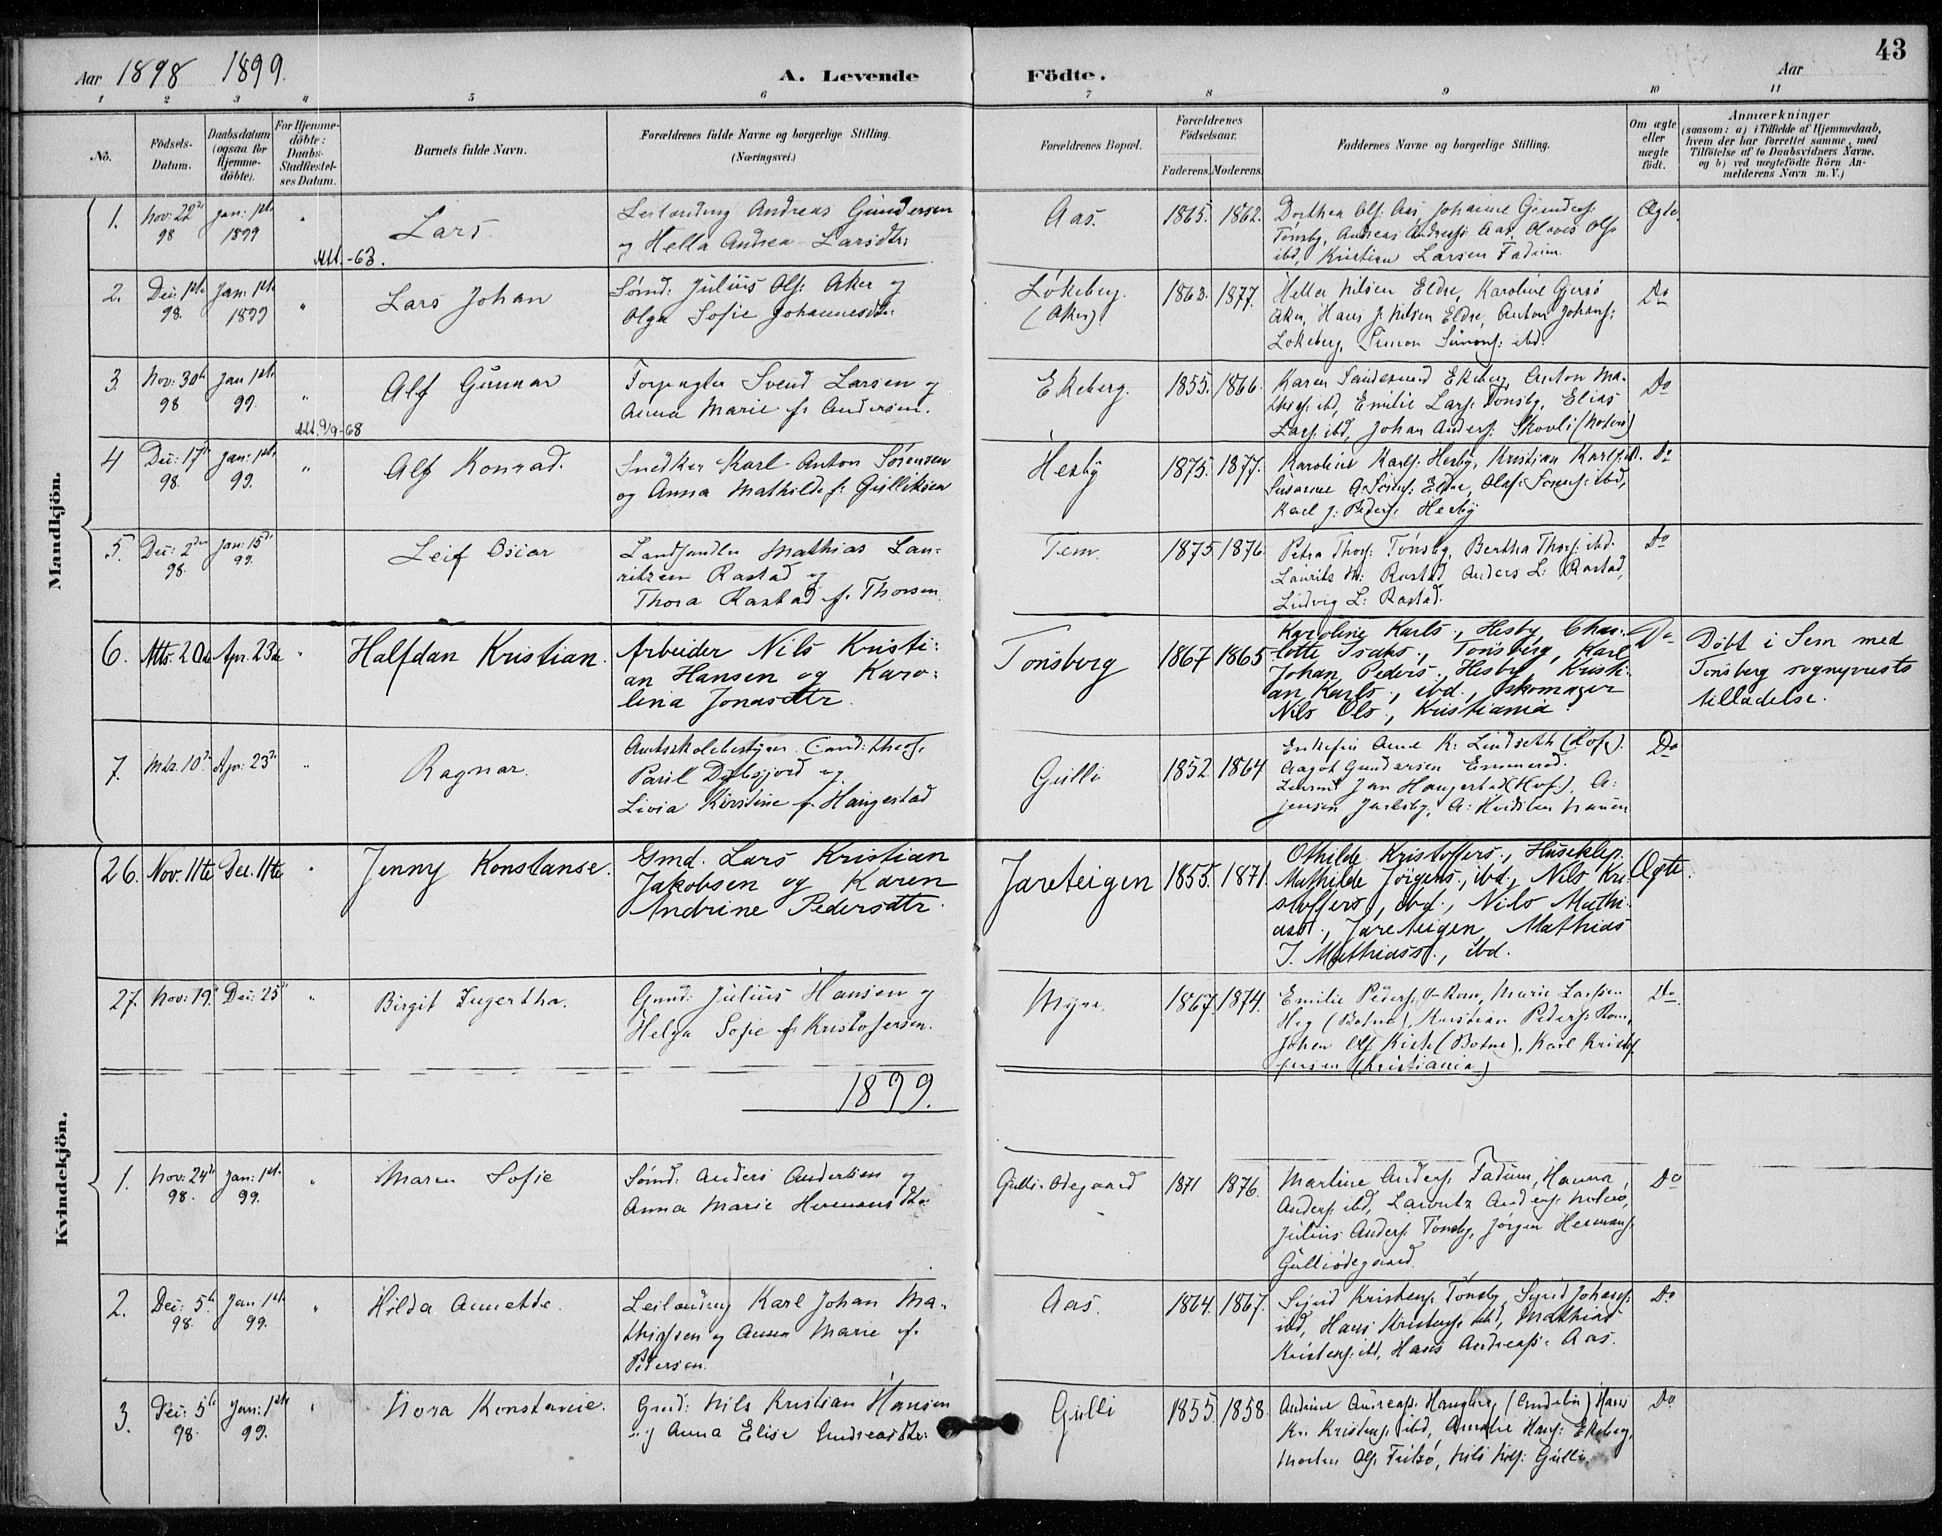 43
Aar 1898 1899. A. Levende Födte. Aar
1 2 3 4 5 6 7 8 9 10 11
No. Födsels-Datum. Daabsdatum (ogsaa for Hjemme-döbte). For Hjemme-döbte: Daabs-Stadfæstel-ses Datum. Barnets fulde Navn. Forældrenes fulde Navne og borgerlige Stilling. (Næringsvei.) Forældrenes Bopæl. Forældrenes Födselsaar. Faderens. Moderens. Faddernes Navne og borgerlige Stilling. Om ægte eller uægte födt. Anmærkninger (saasom: a) i Tilfælde af Hjemmedaab, hvem der har forrettet samme, med Tilföielse af to Daabsvidners Navne, og b) ved uægtefödte Börn An-melderens Navn m. V.)
Mandkjön.
1. Nov: 22 98 Jan: 1st. 1899 " Att. -63. Lars
Leilænding Andreas Gundersen
og Hella Andrea Larsdtr:
Aas. 1865. 1862.
Dorthea Ols: Aas, Johanne Gunders:
Tönsbg, Andreas Andreass: Aas, Olaves Ols:
ibd, Kristian Larsen Fadum.
Ægte.
2. Dec: 1st. 98. Jan: 1st. 1899 " Lars Johan
Sömd: Julius Ols: Aker og
Olga Sofie Johannesdtr:
Lökeberg. (Aker) 1863. 1877.
Helle Nilsen Eldre, Karoline
Aker, Hans J: Nilsen Eldre, Anton Johans:
Lökeberg, Simon Simons: ibd.
Do
3 Nov: 30 98 Jan 1st. 99. " Att. 9/9-68 Alf Gunnar
Forpagter Svend Larsen og
Anna Marie f. Andersen.
Ekeberg. 1855. 1866.
Karen Ekeberg, Anton Ma-
thias: ibd, Emilie Lars: Tönsbg, Elias
Lars: ibd, Johan Anders: Skovli (Noterö)
Do
4 Dec: 17 98. Jan: 1st. 99. " Alf Konrad.
Snedker Karl Anton Sörensen
og Anna Mathilde f: Gulliksen
Hesby 1875. 1877.
Karoline Karls: Hesby, Kristian Karls: ibd.
Susanne A. Sörens: Eldre, Olaf Sörens: ibd,
Karl J: Peders: Hesby
Do
5. Dec: 2 98. Jan: 15 99. Leif Oscar
Landhandler Mathias Lau-
ritzen Rastad og
Thora Rastad f. Thorsen
Tem. 1875 1876.
Petra Thors: Tönsbg, Bertha Thors: ibd.
Laurits M: Rastad, Anders L: Rastad,
Ludvig L: Rastad.
Do
6. Mts. 2 Apr. 23de " Halfdan Kristian.
Arbeider Nils Kristi-
an Hansen og Karo-
lina Jonasdtr.
Tönsberg 1867 1865
Karoline Karls., Hesby, Char-
lotte Isaks., Tönsberg, Karl
Johan Peders., Hesby, Kristi-
an Karls., ibd., skomager
Nils Ols., Kristiania.
Do
Döbt i Sem med
Tönsberg sogneprests
tilladelse.
7. Mts. 10 Apr: 23 " Ragnar.
Amtsskolebestyrer Cand: theol.
Livia Kirstine f. Haugestad
Gulli 1852 1864
Enkefru Anne K: Lindseth (Hof).
Aagot Gundersen
Jan Haugestad (Hof), A:
Jensen Jarlsby, A:
Do
Kvindekjön.
26. Nov. 11te Dec. 11te " Jenny Konstanse.
Gmd. Lars Kristian
Jakobsen og Karen
Andrine Pedersdtr.
Jareteigen 1855. 1871.
Othilde Kristoffers., Huseklep.
Mathilde Jörgens., ibd., Nils Kri-
stoffers., ibd., Nils Mathi-
ass., Jareteigen, Mathias
J. Mathiass., ibd.
Ægte.
27. Nov: 19 Dec: 25 " Birgit Ingertha.
Gmd: Julius Hansen og
Helga Sofie f. Kristofersen.
Myra. 1867. 1874.
Emilie Peders: Rom, Marie Larsen
(Botne), Kristian Peders: Rom,
Johan Ols: (Botne), Karl Kristof-
fersen (Kristiania)
Do.
1899.
1. Nov: 24 98. Jan: 1st. 99. " Maren Sofie
Sömd: Anders Andersen og
Anna Marie Hermansdtr:
Gulli-Ödegaard 1871 1876.
Martine Anders: Fadum, Hanna
Anders: ibd, Lauritz Anders: Noterö,
Julius Anders: Tönsbg, Jörgen Hermans:
Gulliödegaard.
Do
2. Dec: 5 98. Jan 1st. 99. " Hilda Annette.
Leilænding Karl Johan Ma-
thiasen og Anna Marie f.
Petersen.
Aas. 1864. 1867.
Sigrid Kristens: Tönsbg, Sigrid Johans:
ibd, Hans Kristens: ibd, Mathias
Kristens: ibd, Hans Andreass: Aas.
Do
3. Dec: 5 98. Jan: 1st. 99. " Nora Konstance.
Gmd: Nils Kristian Hansen
og Anna Elise Andreasdtr:
Gulli 1855 1858.
Andrine Andreass: (Andebu) Hans
Kr. Kristens: ibd, Amalie Hans: Ekeberg,
Morten Ols: Fritsö, Nils Nils: Gulli.
Do